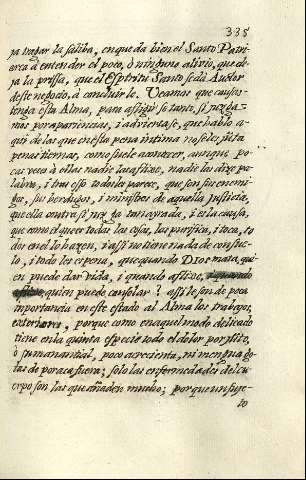 335
ra tragar la saliba, en que da bien el Santo Patri-
arca à entender el poco, ò ninguno alivio, que de-
ja la prissa, que el Espiritu Santo se dà Auctor
deste negocio, à concluirle. Veamos que causas
tenga esta Alma, para afligirse tanto, si juzga-
mos por apariencias, i adviertase, que hablo a-
qui de las que en esta pena intima no se les junta
penas internas, como suele acontecer, aunque po-
cas veces à ellas nadie las aflixe, nadie las dize pa-
labra, i tras eso todos les parece, que son sus enemi-
gos, sus berdugos, i ministros de aquella Justicia,
que ella contra si tan ayrada, i es la causa,
que como el que ece todas las cosas, las purifica, i toca, to
dos en el lo hazen, i assi no tiene nada de consue-
lo, i todo les es pena, que quando Dios mata, qui-
en puede dar vida, i quando aflixe,
quien puede consolar? assi le son de poca
importancia en este estado al Alma los trabajos
exteriores, porque como en aquel modo delicado
tiene en la quinta especie todo el dolor por filto,
ò su manantial, poco acrecienta, ni mengua go-
tas de por acà fuera; solo las enfermedades del cu-
erpo son las que añaden mucho; porque un suje-
to